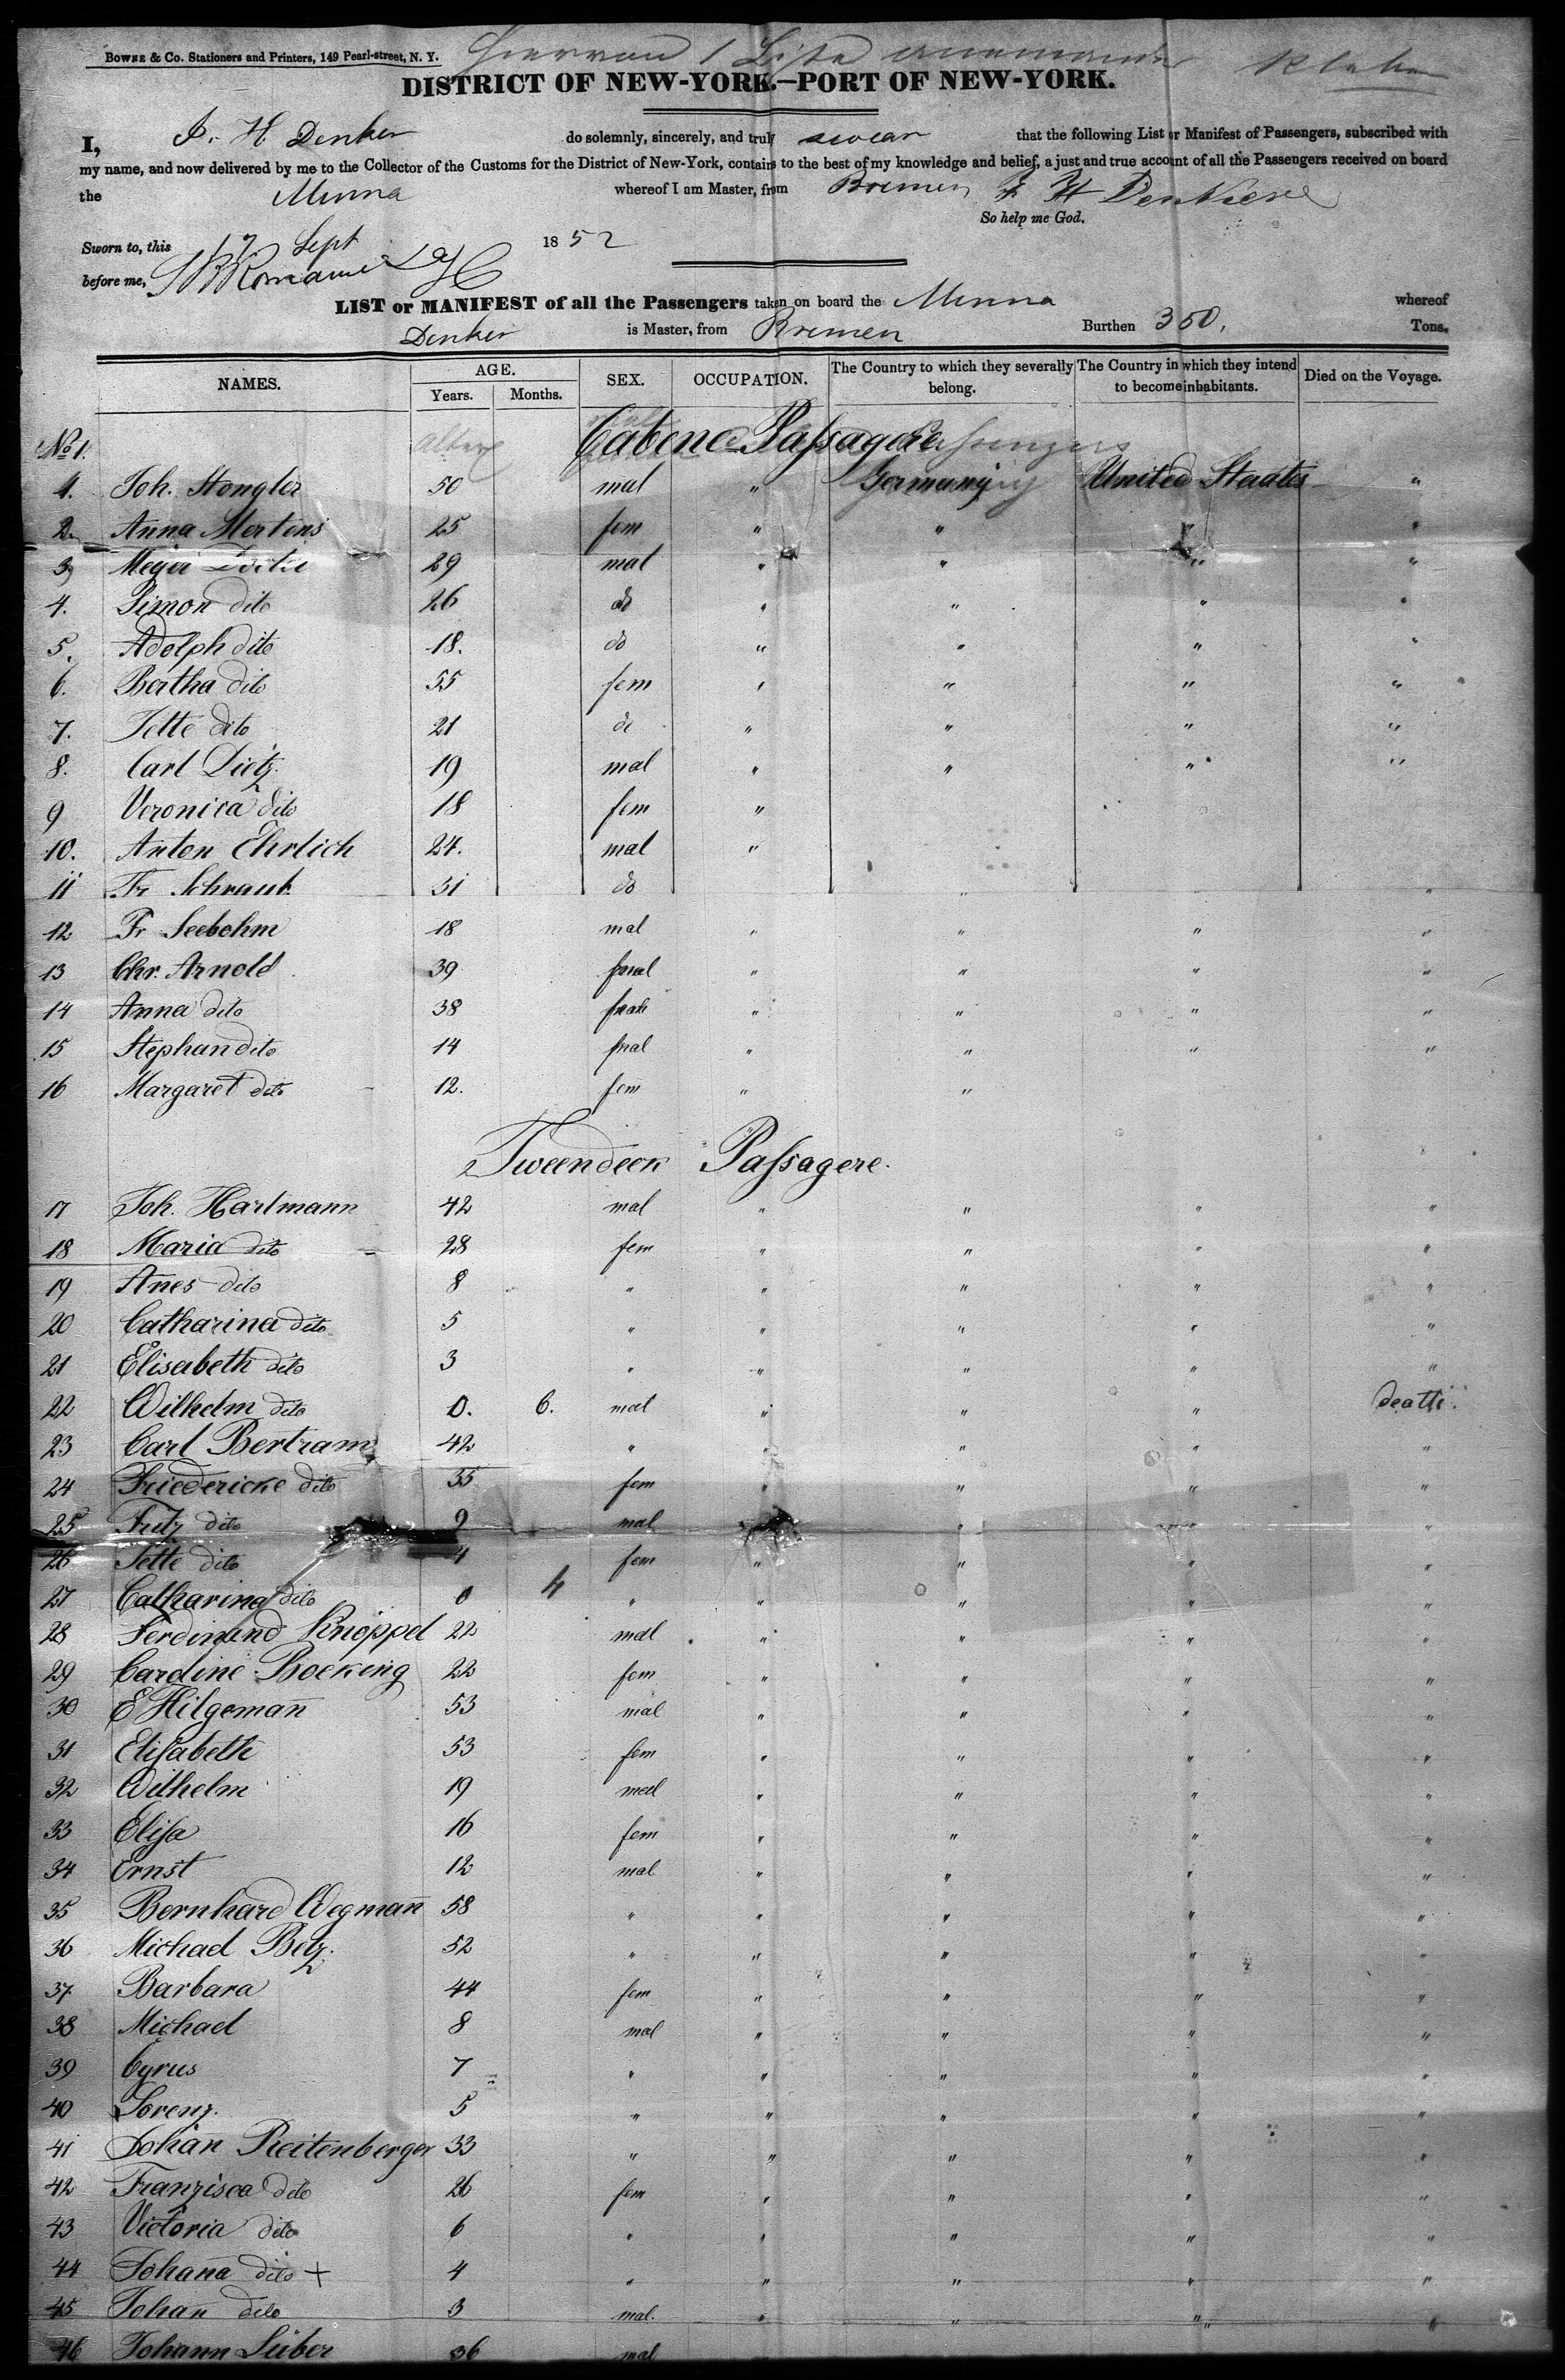 BOWNE & Co. Stationers and Printers, 149 Pearl-street, N. Y.
DISTRICT OF NEW-YORK.—PORT OF NEW-YORK.
I, H. Denker do solemnly, sincerely, and truly swear that the following List or Manifest of Passengers, subscribed with
my name, and now delivered by me to the Collector of the Customs for the District of New-York, contains to the best of my knowledge and belief, a just and true account of all the Passengers received on board
the Minna whereof I am Master, from Bremen
So help me God.
Sworn to, this 17 Sept 1852
before me,
LIST or MANIFEST of all the Passengers taken on board the Minna whereof
Denker is Master, from Bremen Burthen 350, Tons.
NAMES. AGE. Years. Months. SEX. OCCUPATION. The Country to which they severally belong. The Country in which they intend to become inhabitants. Died on the Voyage.
No 1. Passagere
1. Joh. Stengler 50 mal " Germany United Staates "
2. Anna Mertens 25 fem " " " "
3 Meyer 29 mal " " " "
4. Simon dito 26 do " " " "
5. Adolph dito 18. do " " " "
6. Bertha dito 55 fem " " " "
7. Jette dito 21 do " " " "
8. Carl Dietz. 19 mal " " " "
9 Veronica dito 18 fem "
10. Anton Ehrlich 24. mal "
11 Fr Schraub. 31 do " "
12 Fr Seebohm 18 mal " " " "
13 Chr. Arnold 39 mal " " " "
14 Anna dito 38 " " " "
15 Stephan dito 14 mal " " " "
16 Margaret dito 12. fem " "
Tweendeck Passagere.
17 Joh. Hartmann 42 mal " " " "
18 Maria dito 28 fem " " " "
19 Anes dito 8 " " " " "
20 Catharina dito 5 " " " " "
21 Elisabeth dito 3 " " " " "
22 Wilhelm dito 0. 6. mal " " " death.
23 Carl Bertram 42 " " " " "
24 Friedericke dito 35 fem " " " "
25 Fritz dito 9 mal " " "
26 Jette dito 4 fem " " " "
27 Catharina dito 0 4 " " " " "
28 Ferdinand Knöppel 22 mal " " " "
29 Caroline Boeking 22 fem " " " "
30 E Hilgemañ 53 mal " " " "
31 Elisabeth 53 fem " " " "
32 Wilhelm 19 mal " " " "
33 Elisa 16 fem " " " "
34 Ernst 12 mal " " " "
35 Bernhard Wegmañ 58 " " " " "
36 Michael Betz. 52 " " " " "
37 Barbara 44 fem " " " "
38 Michael 8 mal " " " "
39 Cyrus 7 " " " " "
40 Lorenz. 5 " " " " "
41 Johan Reitenberger 33 " " " " "
42 Franzisca dito 26 fem " " " "
43 Victoria dito 6 " " " " "
44 Johana dito + 4 " " " " "
45 Johan dito 3 mal. " " " "
46 Johann Lüber 36 mal